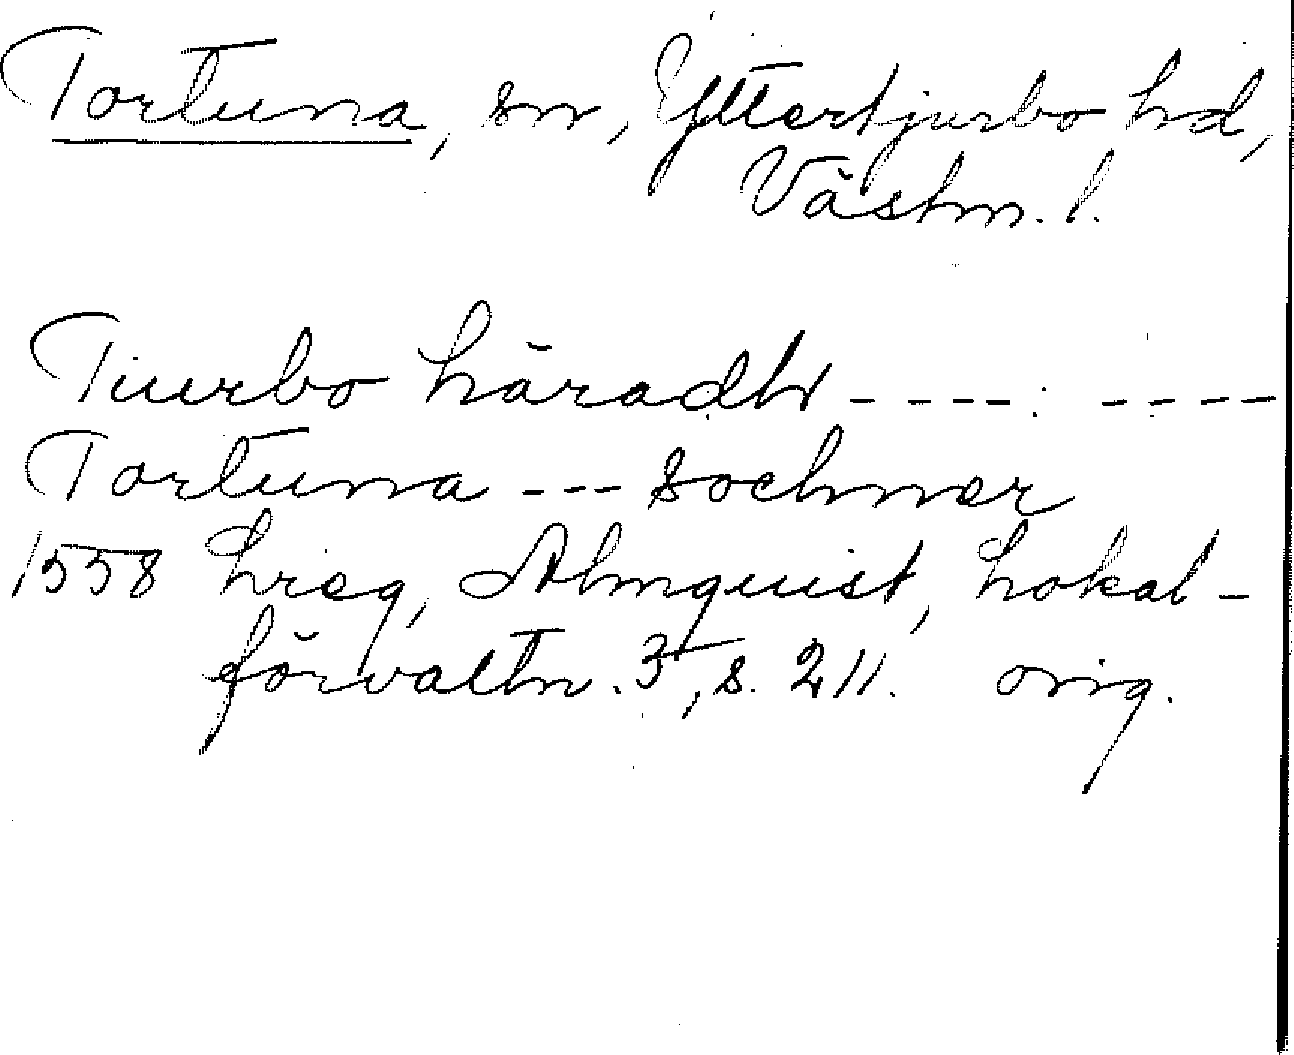 Tortuna, sn, Yttertjurbo hd,
Västm. l.
Tiurbo häradh ---- ----
Tortuna --- sochner
1558 hreg, Almquist, Lokal-
förvaltn. 3, s. 211. orig.